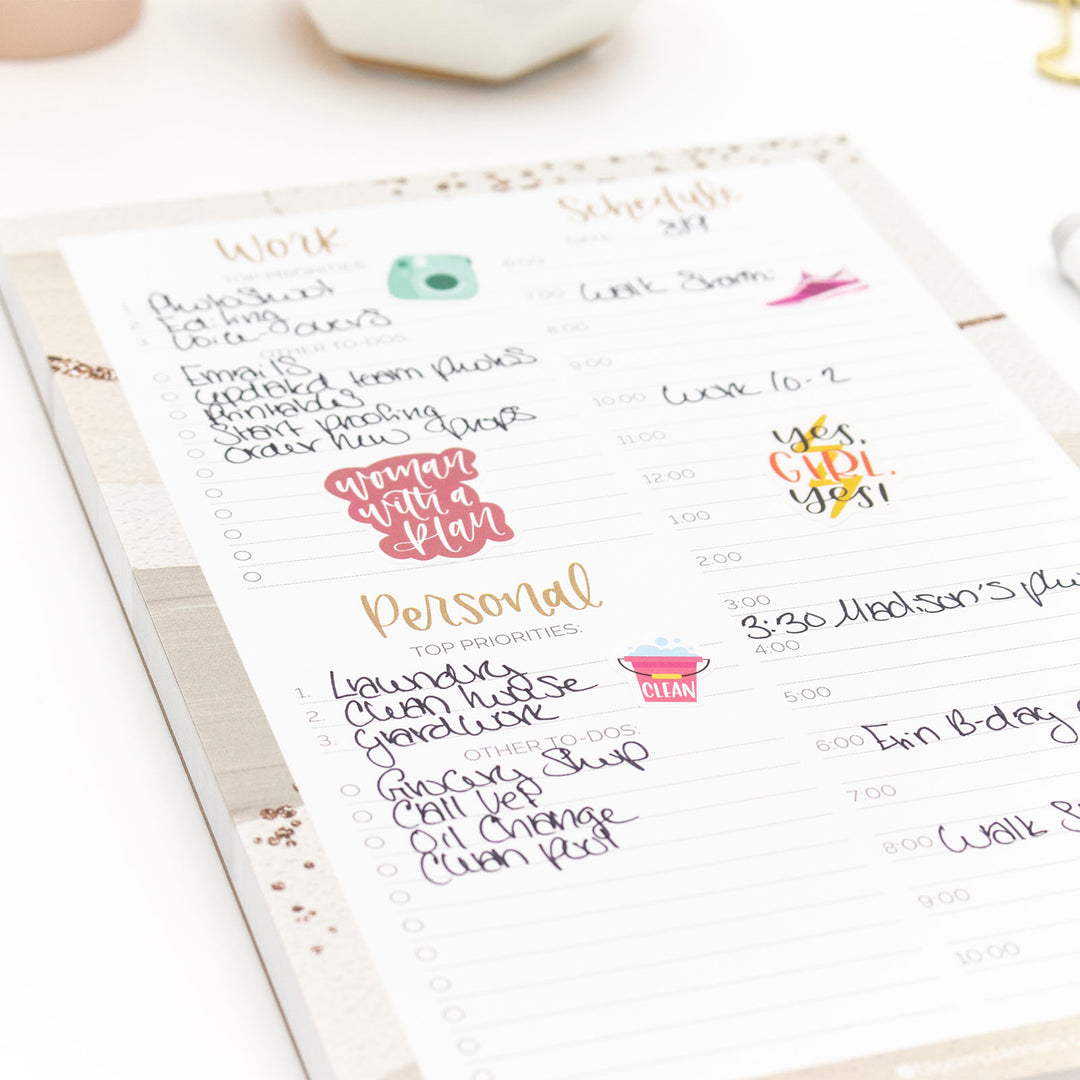 Work
TOP PRIORITIES:
1. Photo Shoot
2. Editing
3. Voice overs
OTHER TO-DOS:
Emails
Updated team photos
Printables
Start Proofing
Order new props
woman
with a
plan
Personal
TOP PRIORITIES:
1. Laundry
2. Clean house
3. Yardwork
CLEAN
OTHER TO-DOS:
Grocery Shop
Call Vet
Oil Change
Clean pool
Schedule
DATE: 3/9
6:00
7:00 Walk Storm
8:00
9:00
10:00 Work 10-2
11:00
12:00
yes,
GIRL,
yes!
1:00
2:00
3:00
3:30 Madison's
4:00
5:00
6:00 Erin B-day
7:00
8:00 Walk
9:00
10:00